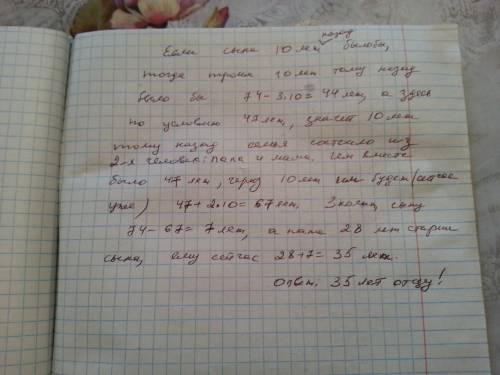 Если сына 10 лет назад было бы,
тогда троим 10 лет тому назад
было бы 74-3·10=44 лет, а здесь
по условию 47 лет, значит 10 лет
тому назад семья состояло из
2-х человек: папа и мама. Им вместе
было 47 лет, через 10 лет им будет (сейчас
уже) 47+2·10=67 лет. Значит, сыну
74-67=7 лет, а папа 28 лет старше
сына, ему сейчас 28+7=35 лет.
Ответ: 35 лет отцу!